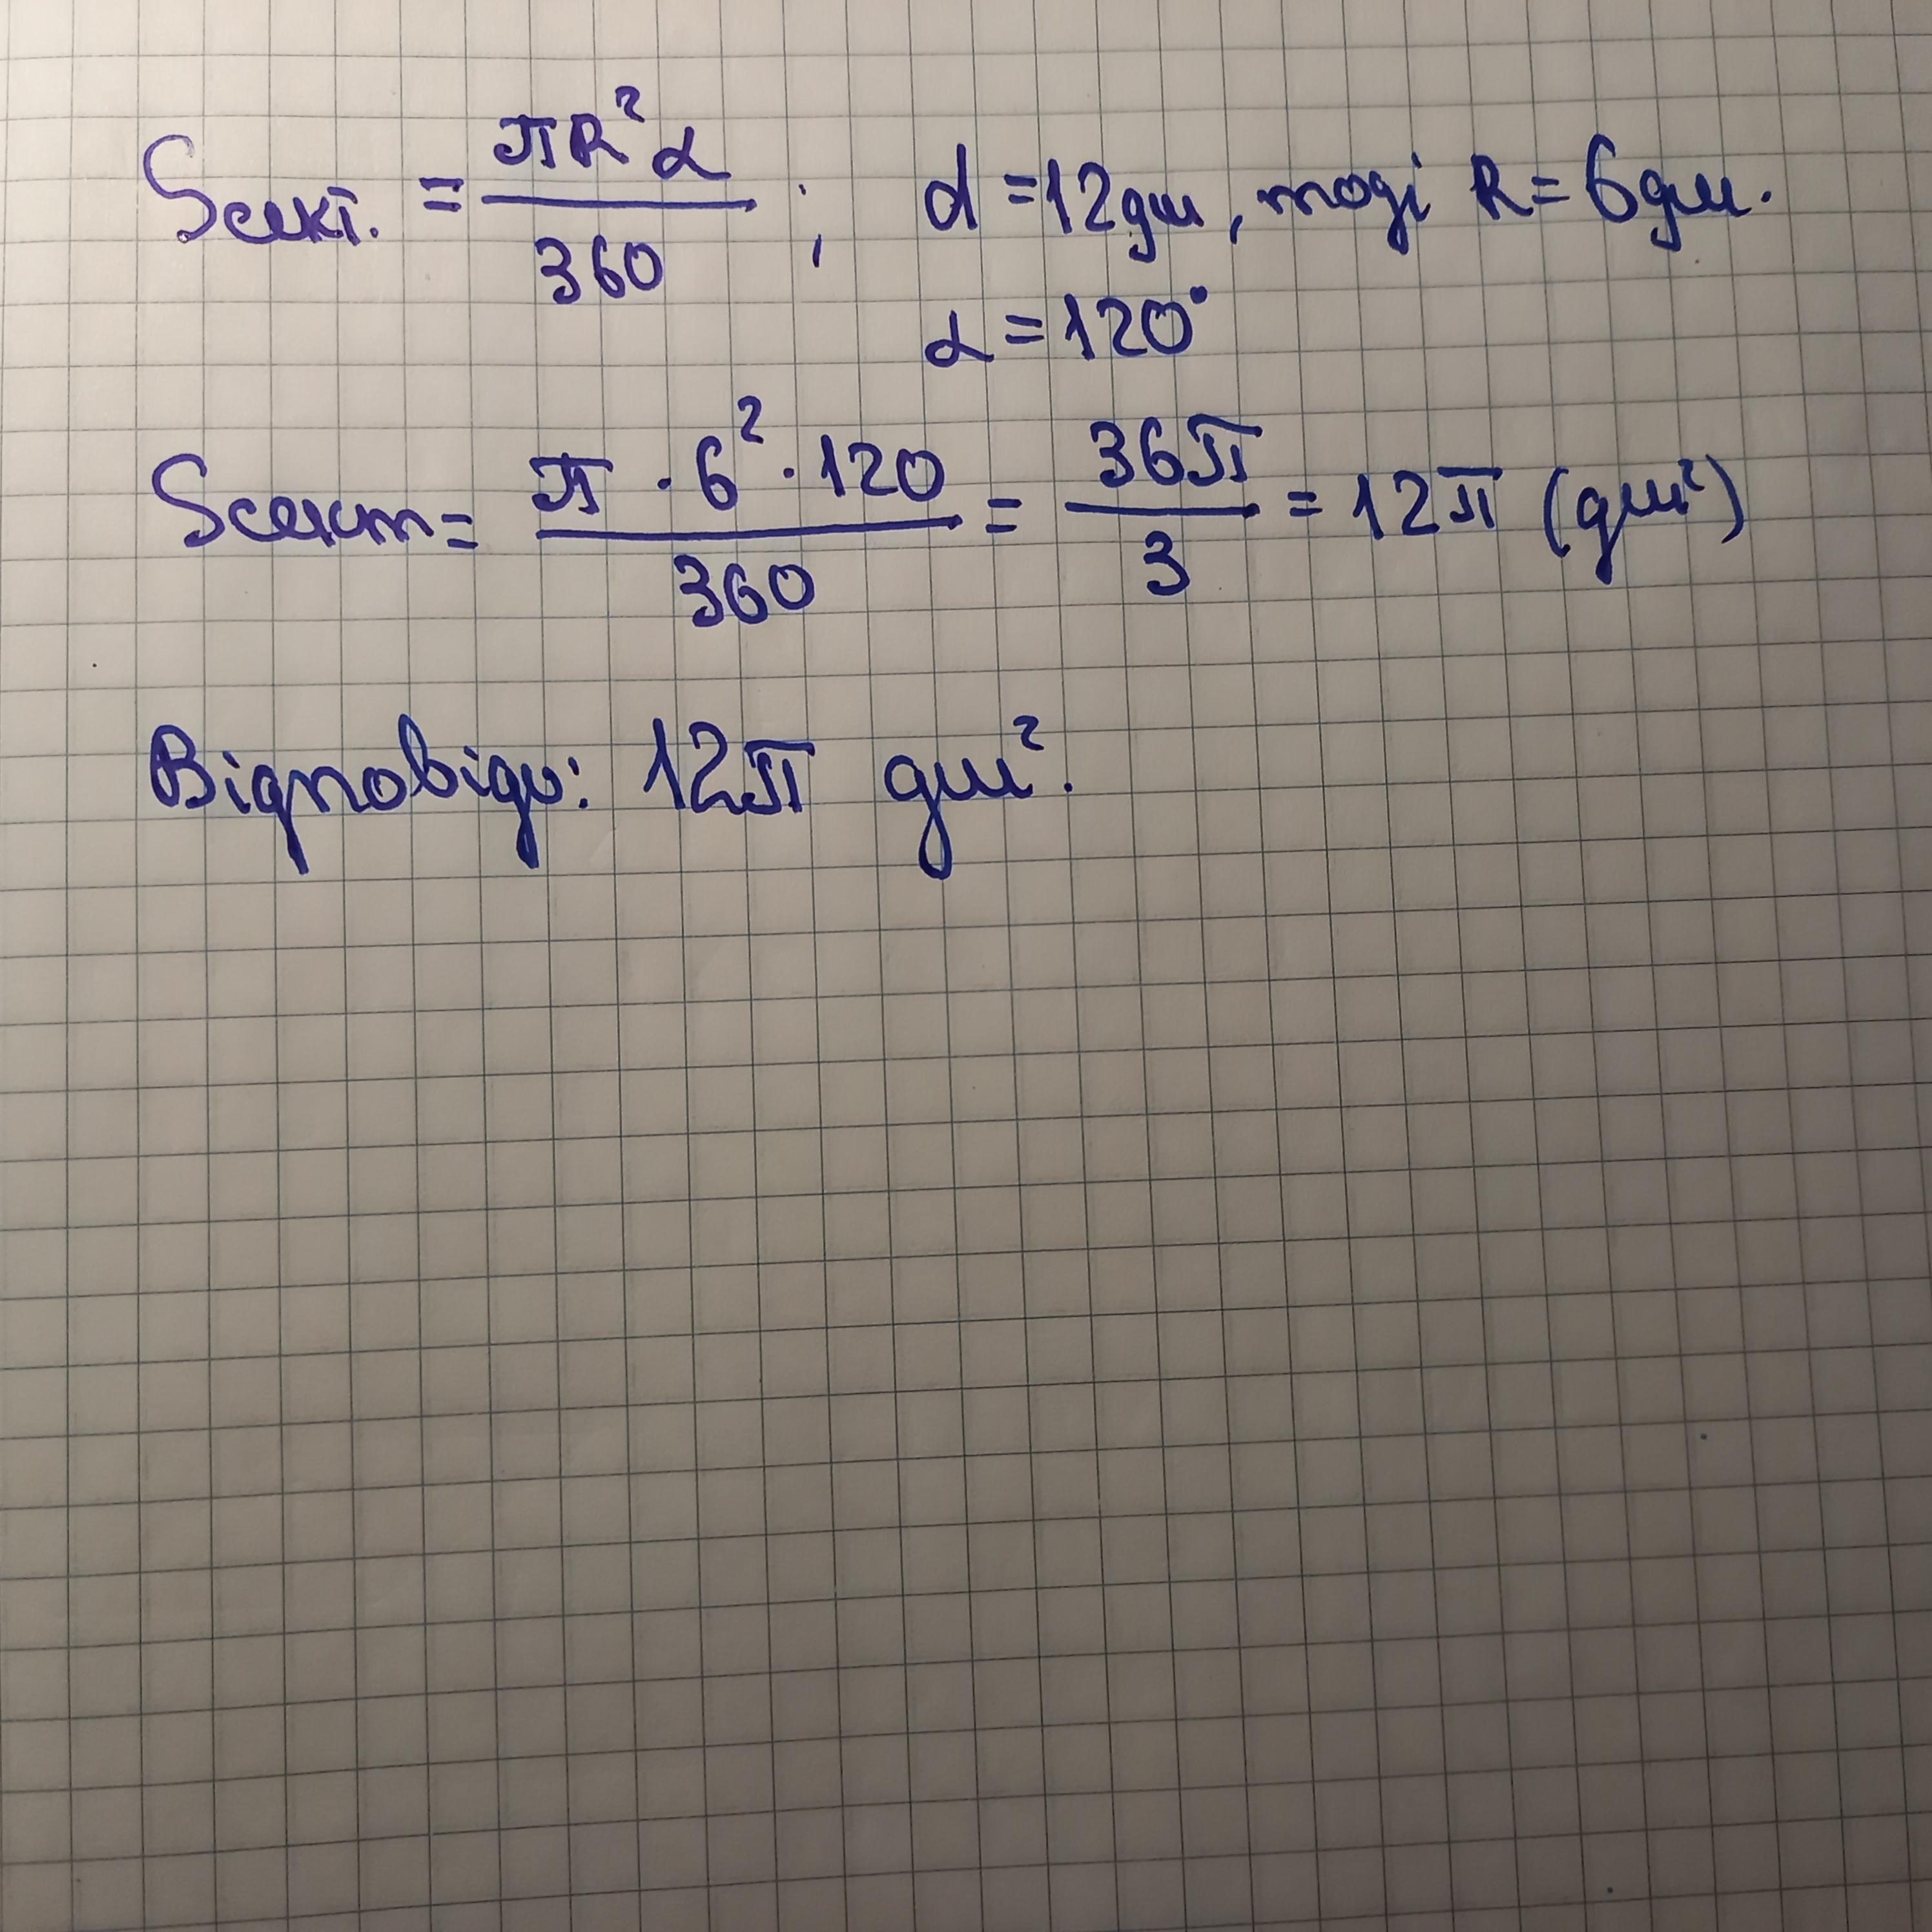 Sсект. = πR²α / 360 ; d = 12дм, тоді R = 6дм.
α = 120°
Sсект = π · 6² · 120 / 360 = 36π / 3 = 12π (дм²)
Відповідь: 12π дм².